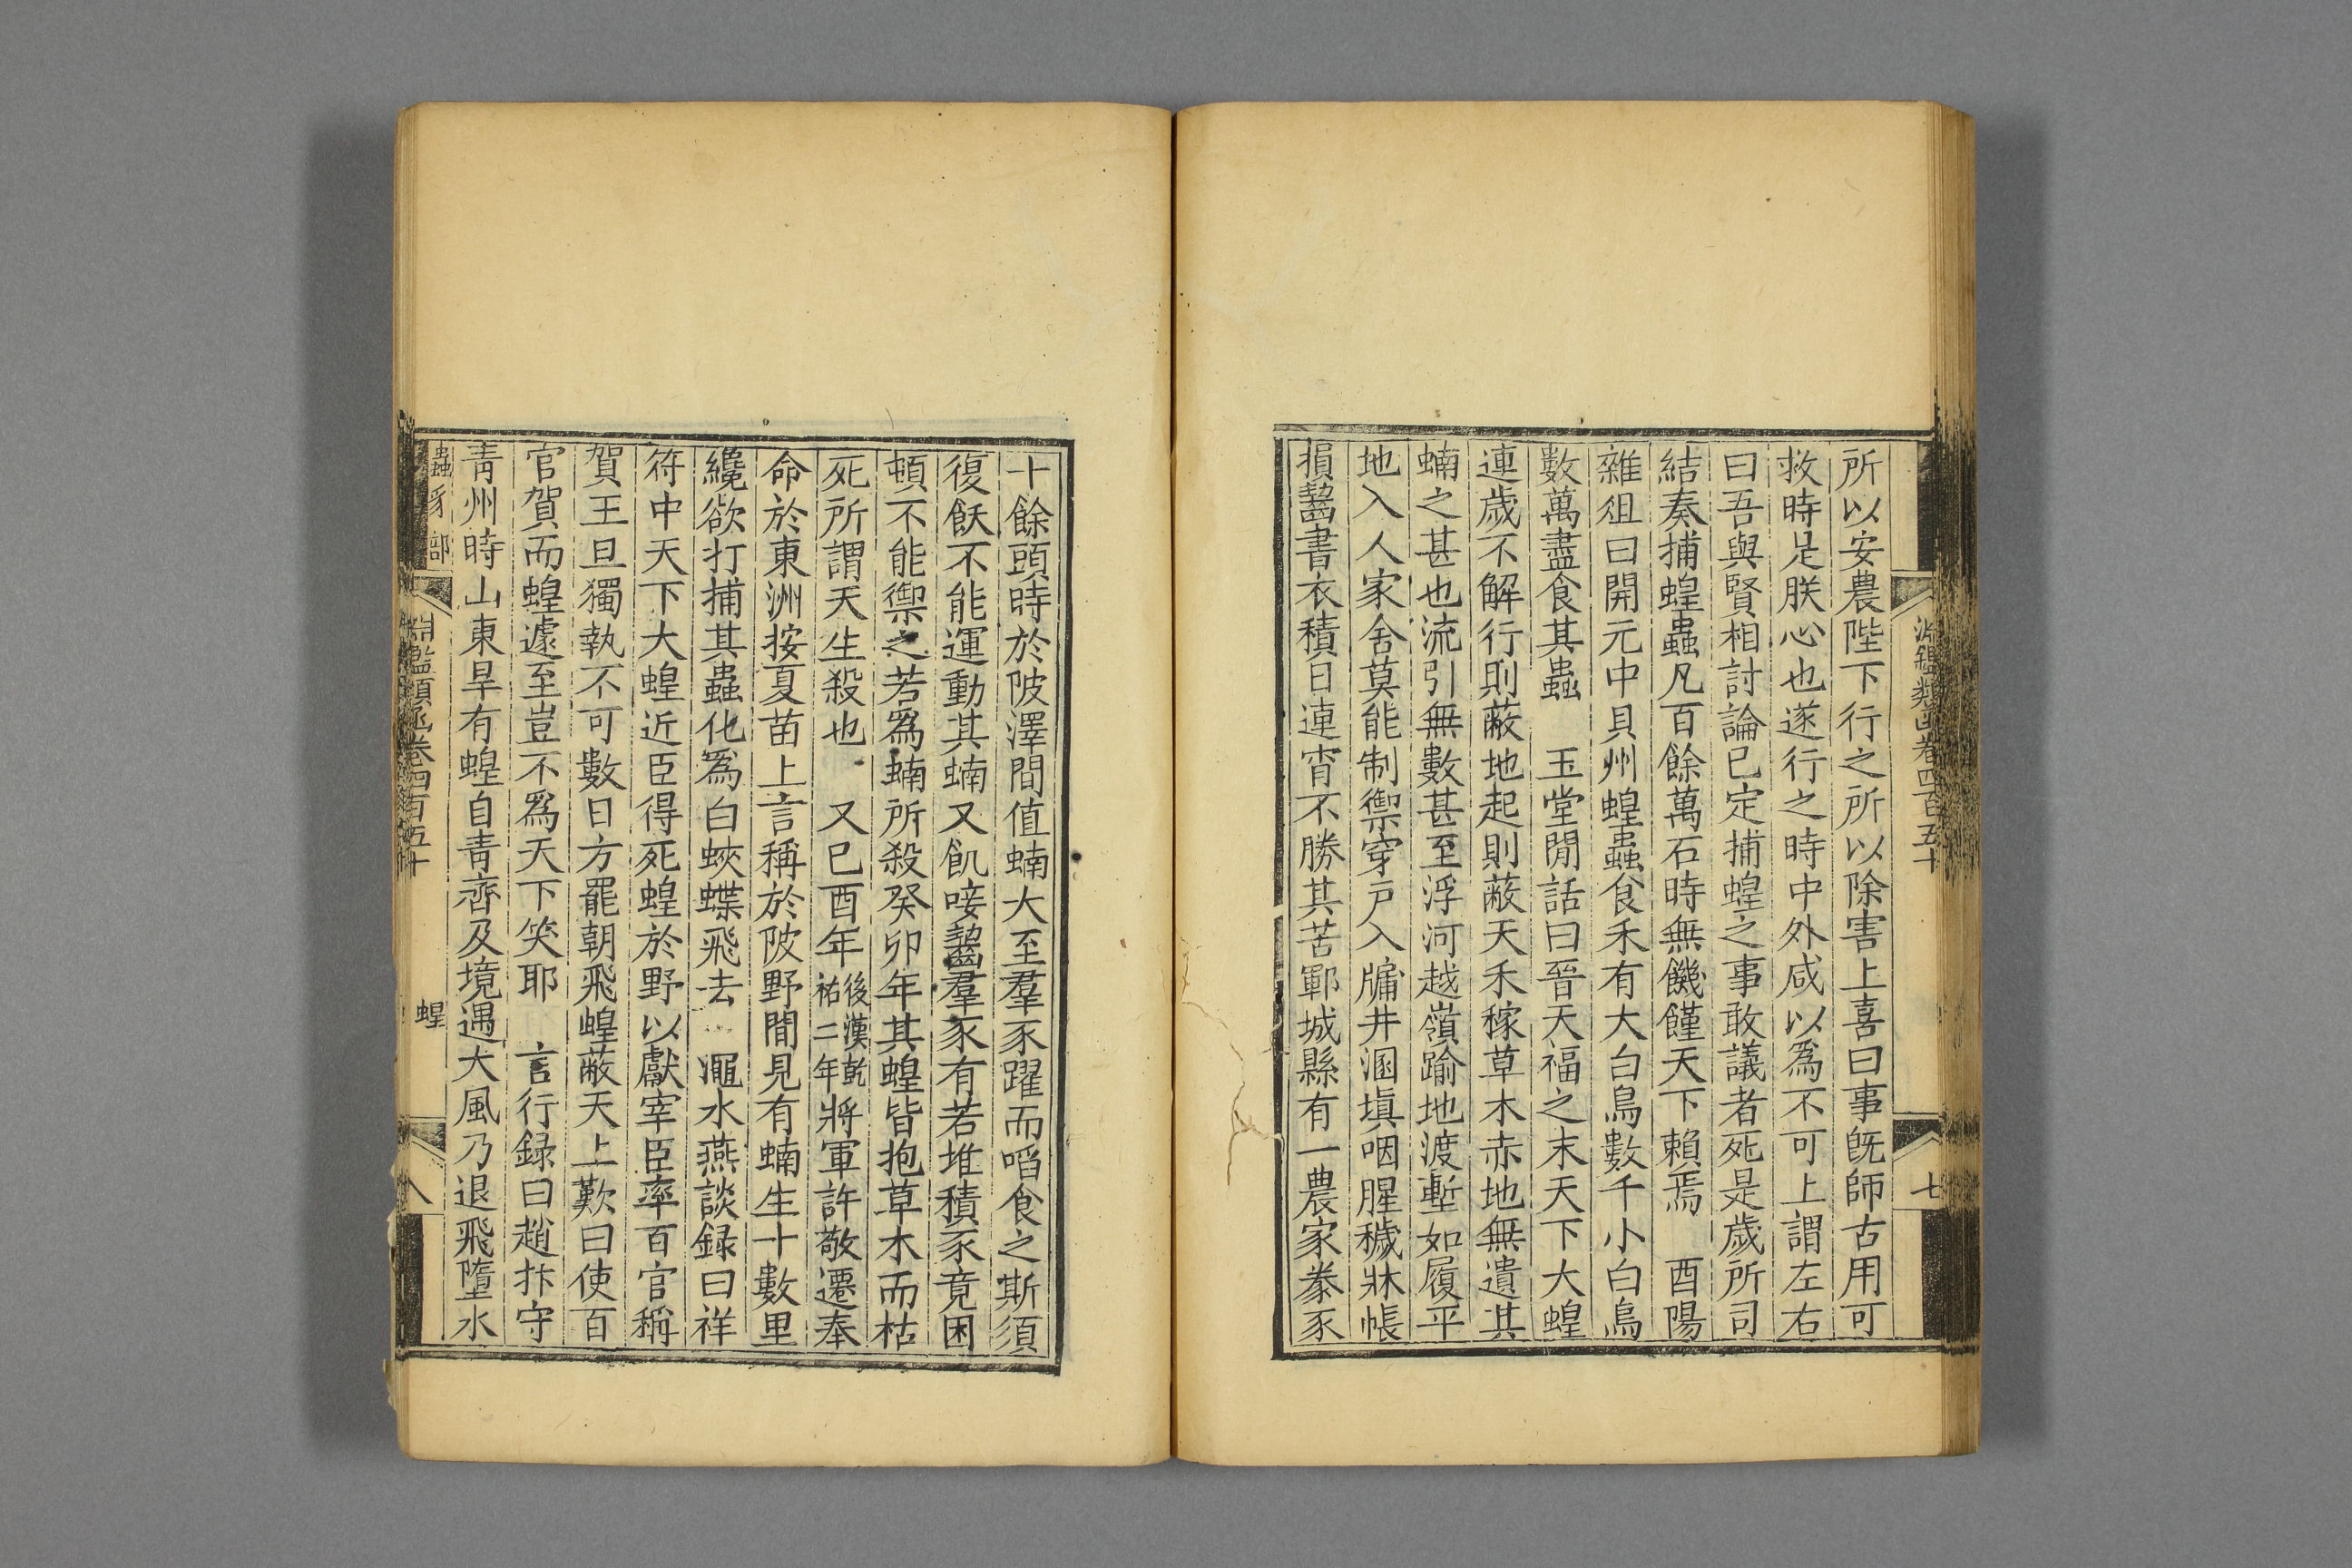 淵鑑類函卷四百五十
七
所以安農陛下行之所以除害上喜曰事旣師古用可
救時是朕心也遂行之時中外咸以爲不可上謂左右
曰吾與賢相討論已定捕蝗之事敢議者死是歲所司
結奏捕蝗蟲凡百餘萬石時無饑饉天下賴焉　酉陽
雜俎曰開元中貝州蝗蟲食禾有大白鳥數千小白鳥
數萬盡食其蟲　玉堂閒話曰晉天福之末天下大蝗
連歲不解行則蔽地起則蔽天禾稼草木赤地無遺其
蝻之甚也流引無數甚至浮河越嶺踰地渡塹如履平
地入人家舍莫能制禦穿戶入牖井溷塡咽腥穢牀帳
損齧書衣積日連宵不勝其苦鄆城縣有一農家豢豕
十餘頭時於陂澤間值蝻大至羣豕躍而啗食之斯須
復飫不能運動其蝻又飢唼齧羣豕有若堆積豕竟困
頓不能禦之若爲蝻所殺癸卯年其蝗皆抱草木而枯
死所謂天生殺也　又己酉年後漢乾祐二年將軍許敬遷奉
命於東洲按夏苗上言稱於陂野間見有蝻生十數里
纔欲打捕其蟲化爲白蛺蝶飛去　澠水燕談録曰祥
符中天下大蝗近臣得死蝗於野以獻宰臣率百官稱
賀王旦獨執不可數日方罷朝飛蝗蔽天上歎曰使百
官賀而蝗遽至豈不爲天下笑耶　言行録曰趙抃守
青州時山東旱有蝗自青齊及境遇大風乃退飛墮水
蟲豸部
淵鑑類函卷四百五十
蝗
八